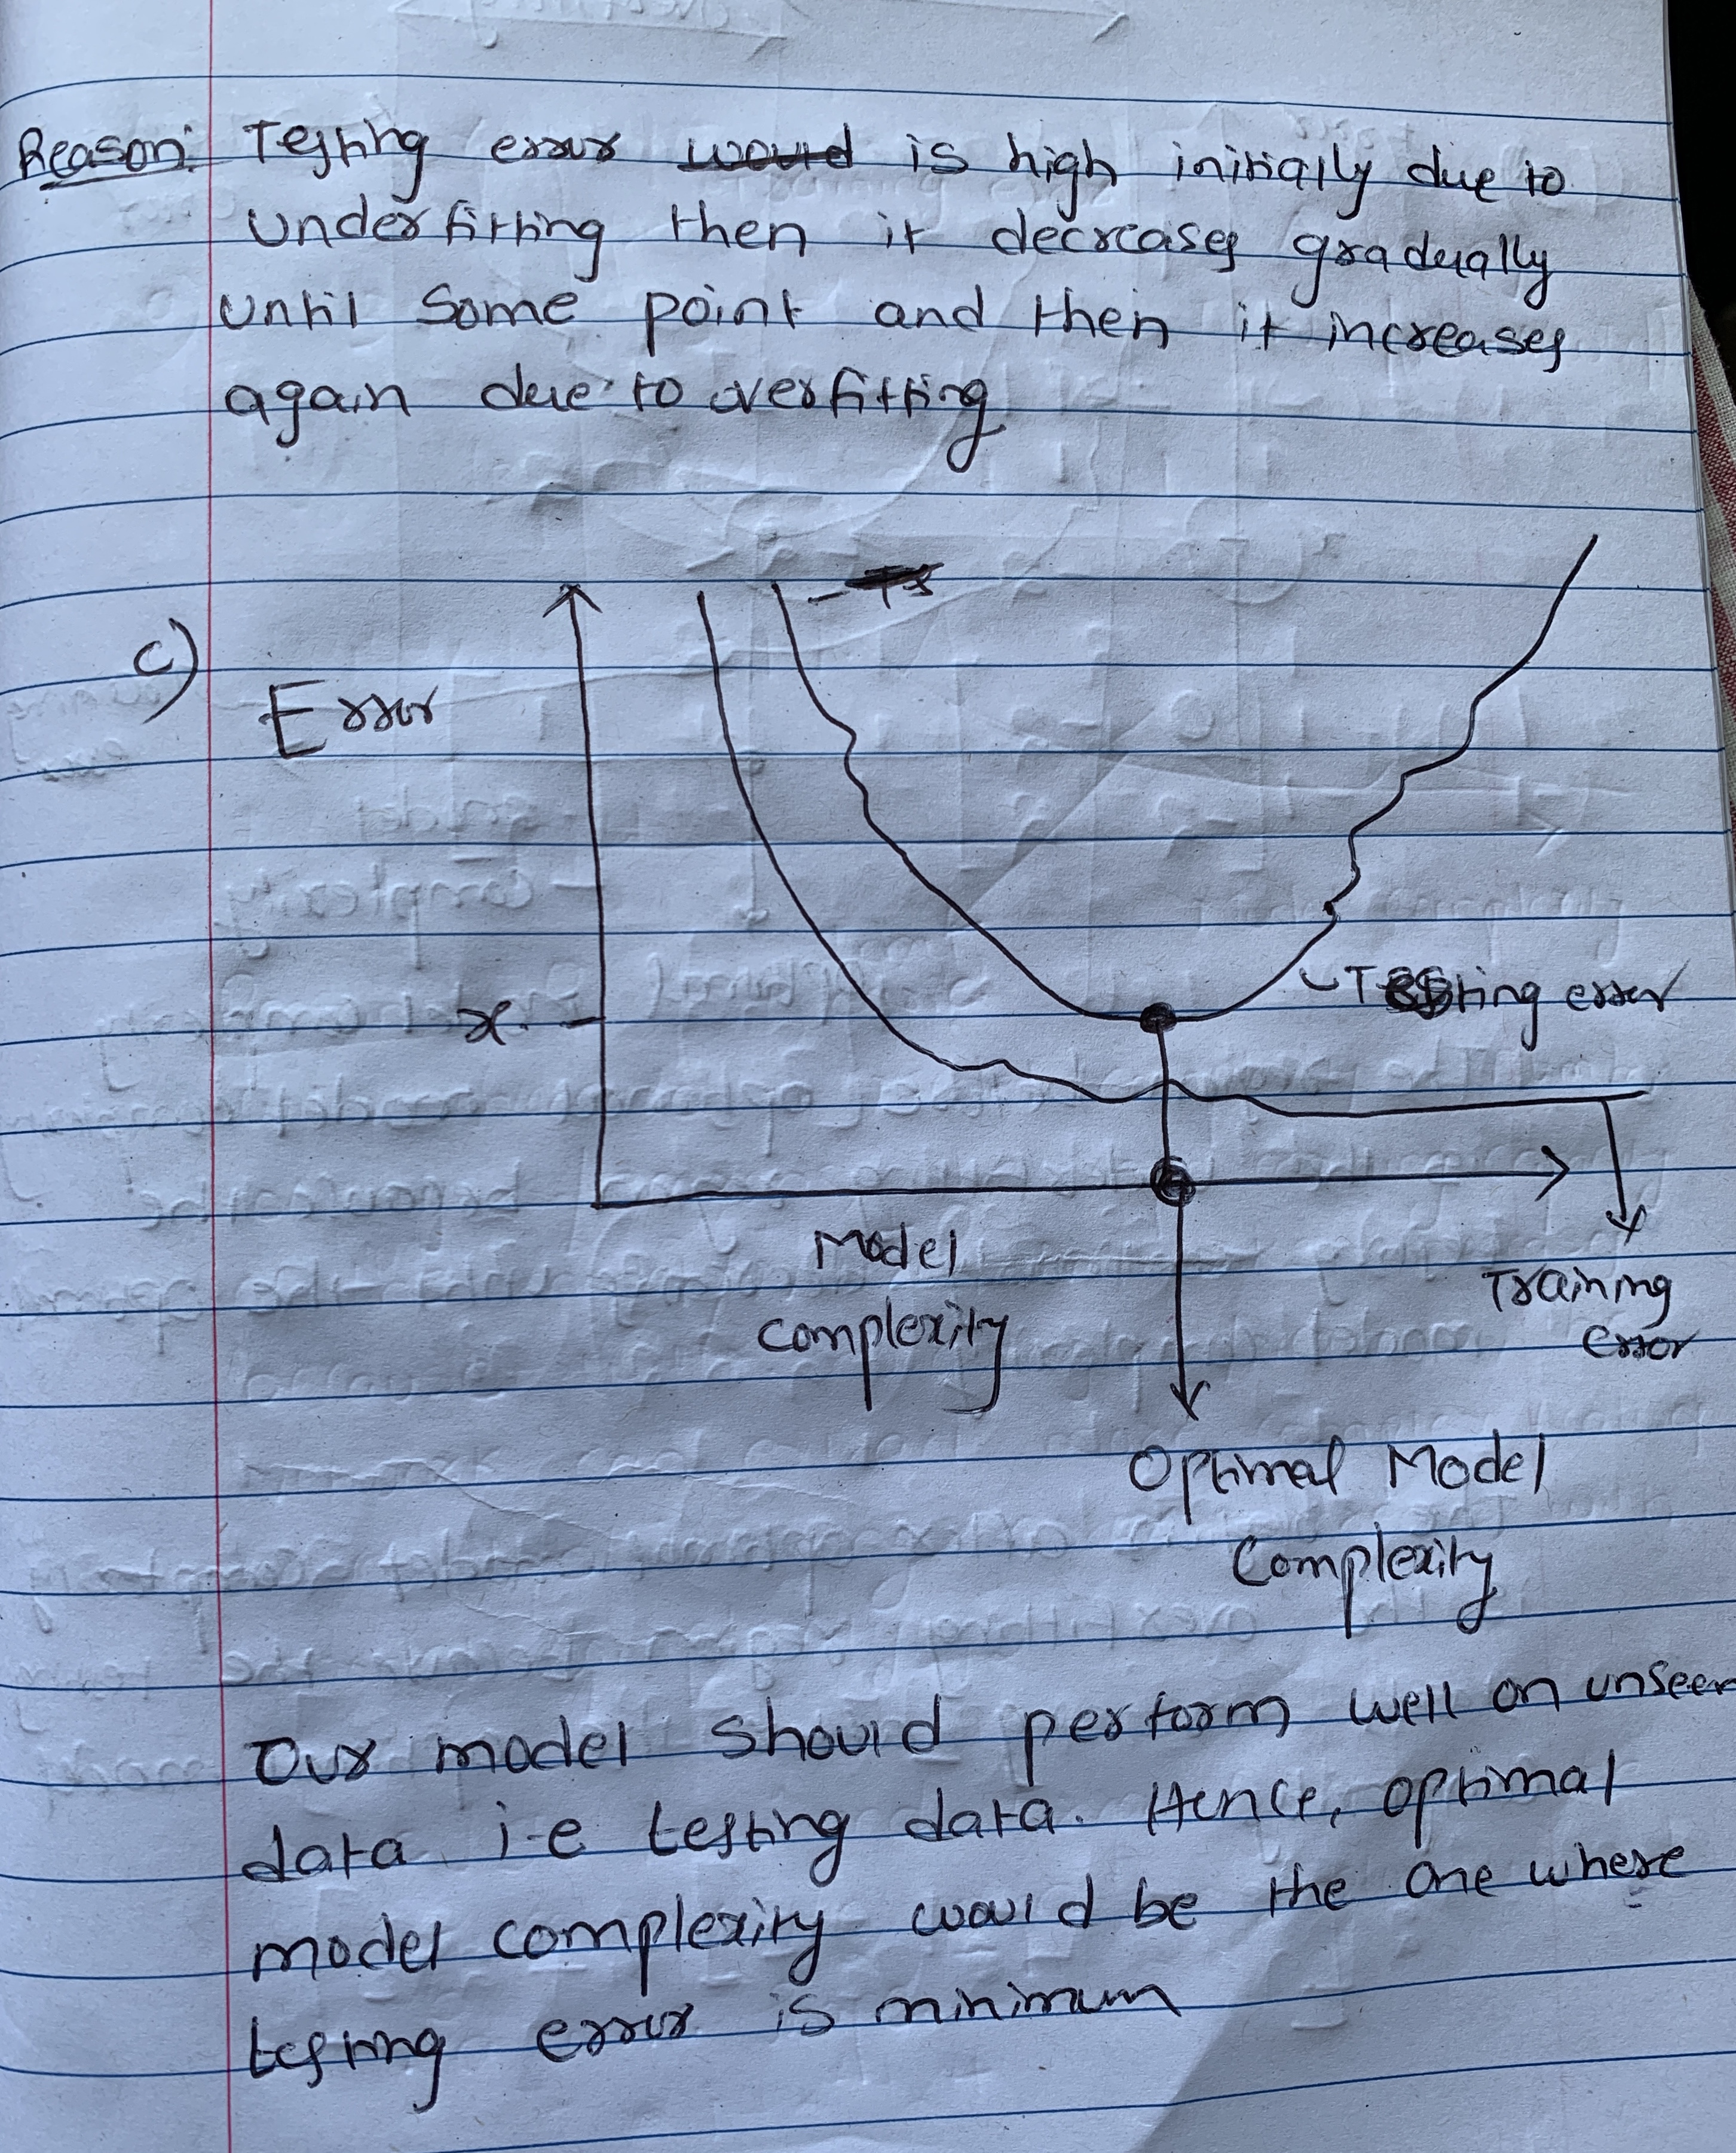 Reason: Testing error would is high initially due to
underfitting then it decreases gradually
until some point and then it increases
again due to overfitting
c)
Error
x
Testing error
Model
complexity
Training
error
Optimal Model
Complexity
Our model should perform well on unseen
data i.e testing data. Hence, optimal
model complexity would be the one where
testing error is minimum